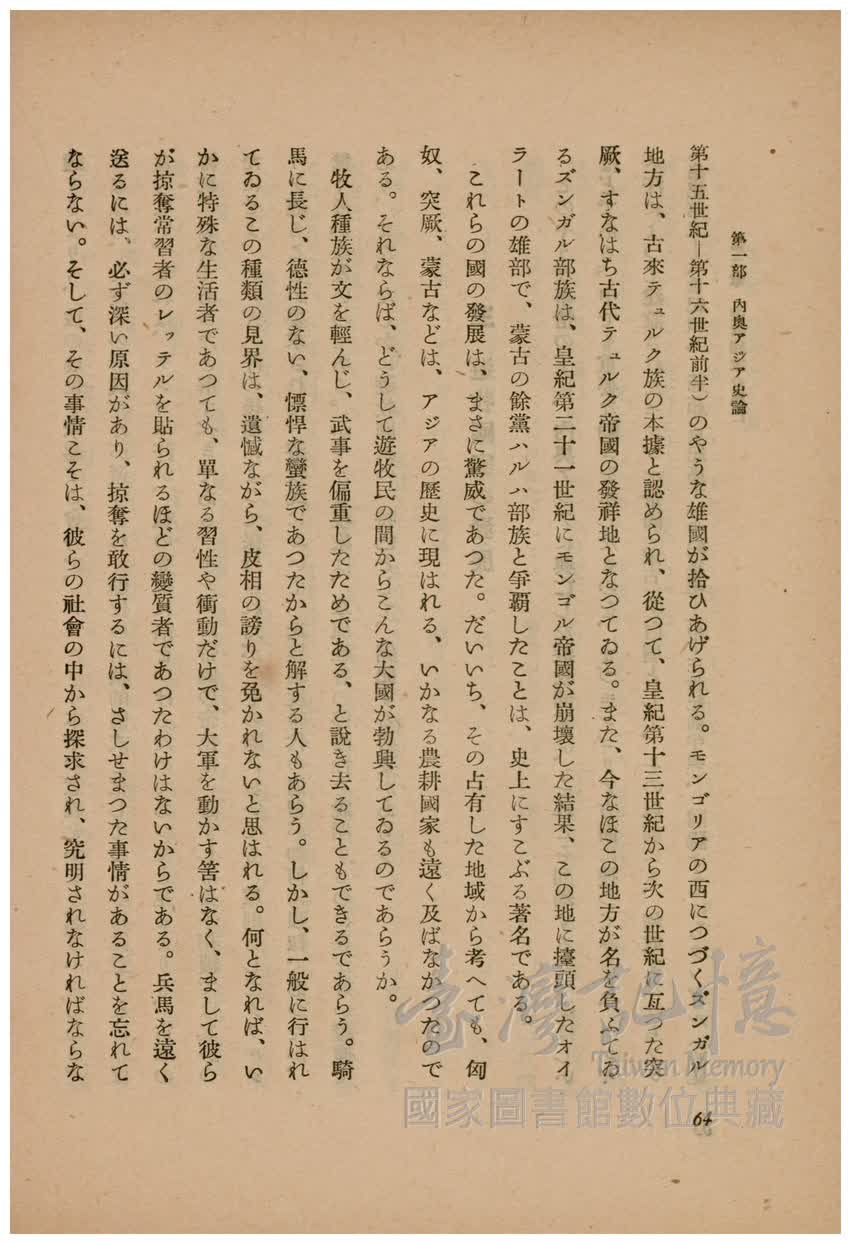 第一部　內奧アジア史論
第十五世紀―第十六世紀前半）のやうな雄國が拾ひあげられる。モンゴリアの西につづくズンガル
地方は、古來テュルク族の本據と認められ、從つて、皇紀第十三世紀から次の世紀に亙つた突
厥、すなはち古代テュルク帝國の發祥地となつてゐる。また、今なほこの地方が名を負ふてゐ
るズンガル部族は、皇紀第二十一世紀にモンゴル帝國が崩壞した結果、この地に擡頭したオイ
ラートの雄部で、蒙古の餘黨ハルハ部族と爭覇したことは、史上にすこぶる著名である。
これらの國の發展は、まさに驚威であつた。だいいち、その占有した地域から考へても、匈
奴、突厥、蒙古などは、アジアの歷史に現はれる、いかなる農耕國家も遠く及ばなかつたので
ある。それならば、どうして遊牧民の間からこんな大國が勃興してゐるのであらうか。
牧人種族が文を輕んじ、武事を偏重したためである、と說き去ることもできるであらう。騎
馬に長じ、德性のない、慓悍な蠻族であつたからと解する人もあらう。しかし、一般に行はれ
てゐるこの種類の見界は、遺憾ながら、皮相の謗りを免かれないと思はれる。何となれば、い
かに特殊な生活者であつても、單なる習性や衝動だけで、大軍を動かす筈はなく、まして彼ら
が掠奪常習者のレッテルを貼られるほどの變質者であつたわけはないからである。兵馬を遠く
送るには、必ず深い原因があり、掠奪を敢行するには、さしせまつた事情があることを忘れて
ならない。そして、その事情こそは、彼らの社會の中から探求され、究明されなければならな
64
臺灣記憶
Taiwan Memory
國家圖書館數位典藏